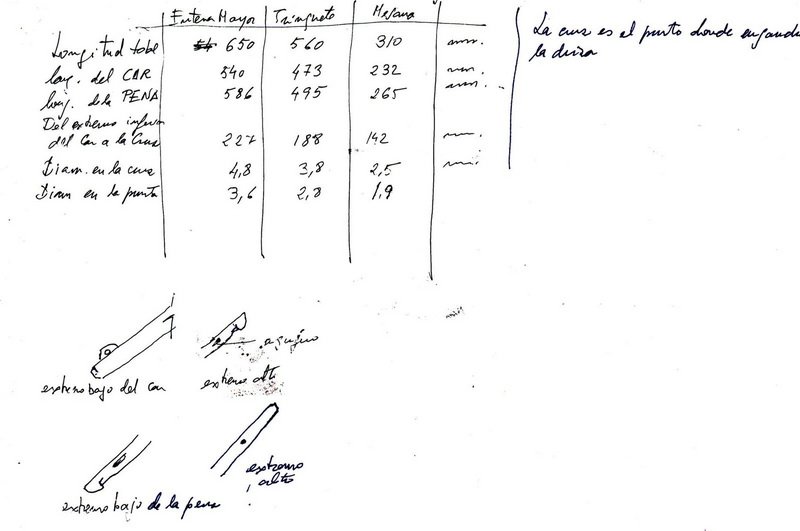 Entena Mayor Trinquete Mesana
Longitud total 650 560 310 mm.
long. del CAR 540 473 232 mm.
long. de la PENA 586 495 265 mm.
Del extremo inferior
del Car a la Cruz 227 188 142 mm.
Diam. en la cruz 4,8 3,8 2,5 mm.
Diam en la punta 3,6 2,8 1,9
La cruz es el punto donde
la driza
extremo bajo del car
extremo alto
extremo bajo de la pena
extremo
alto